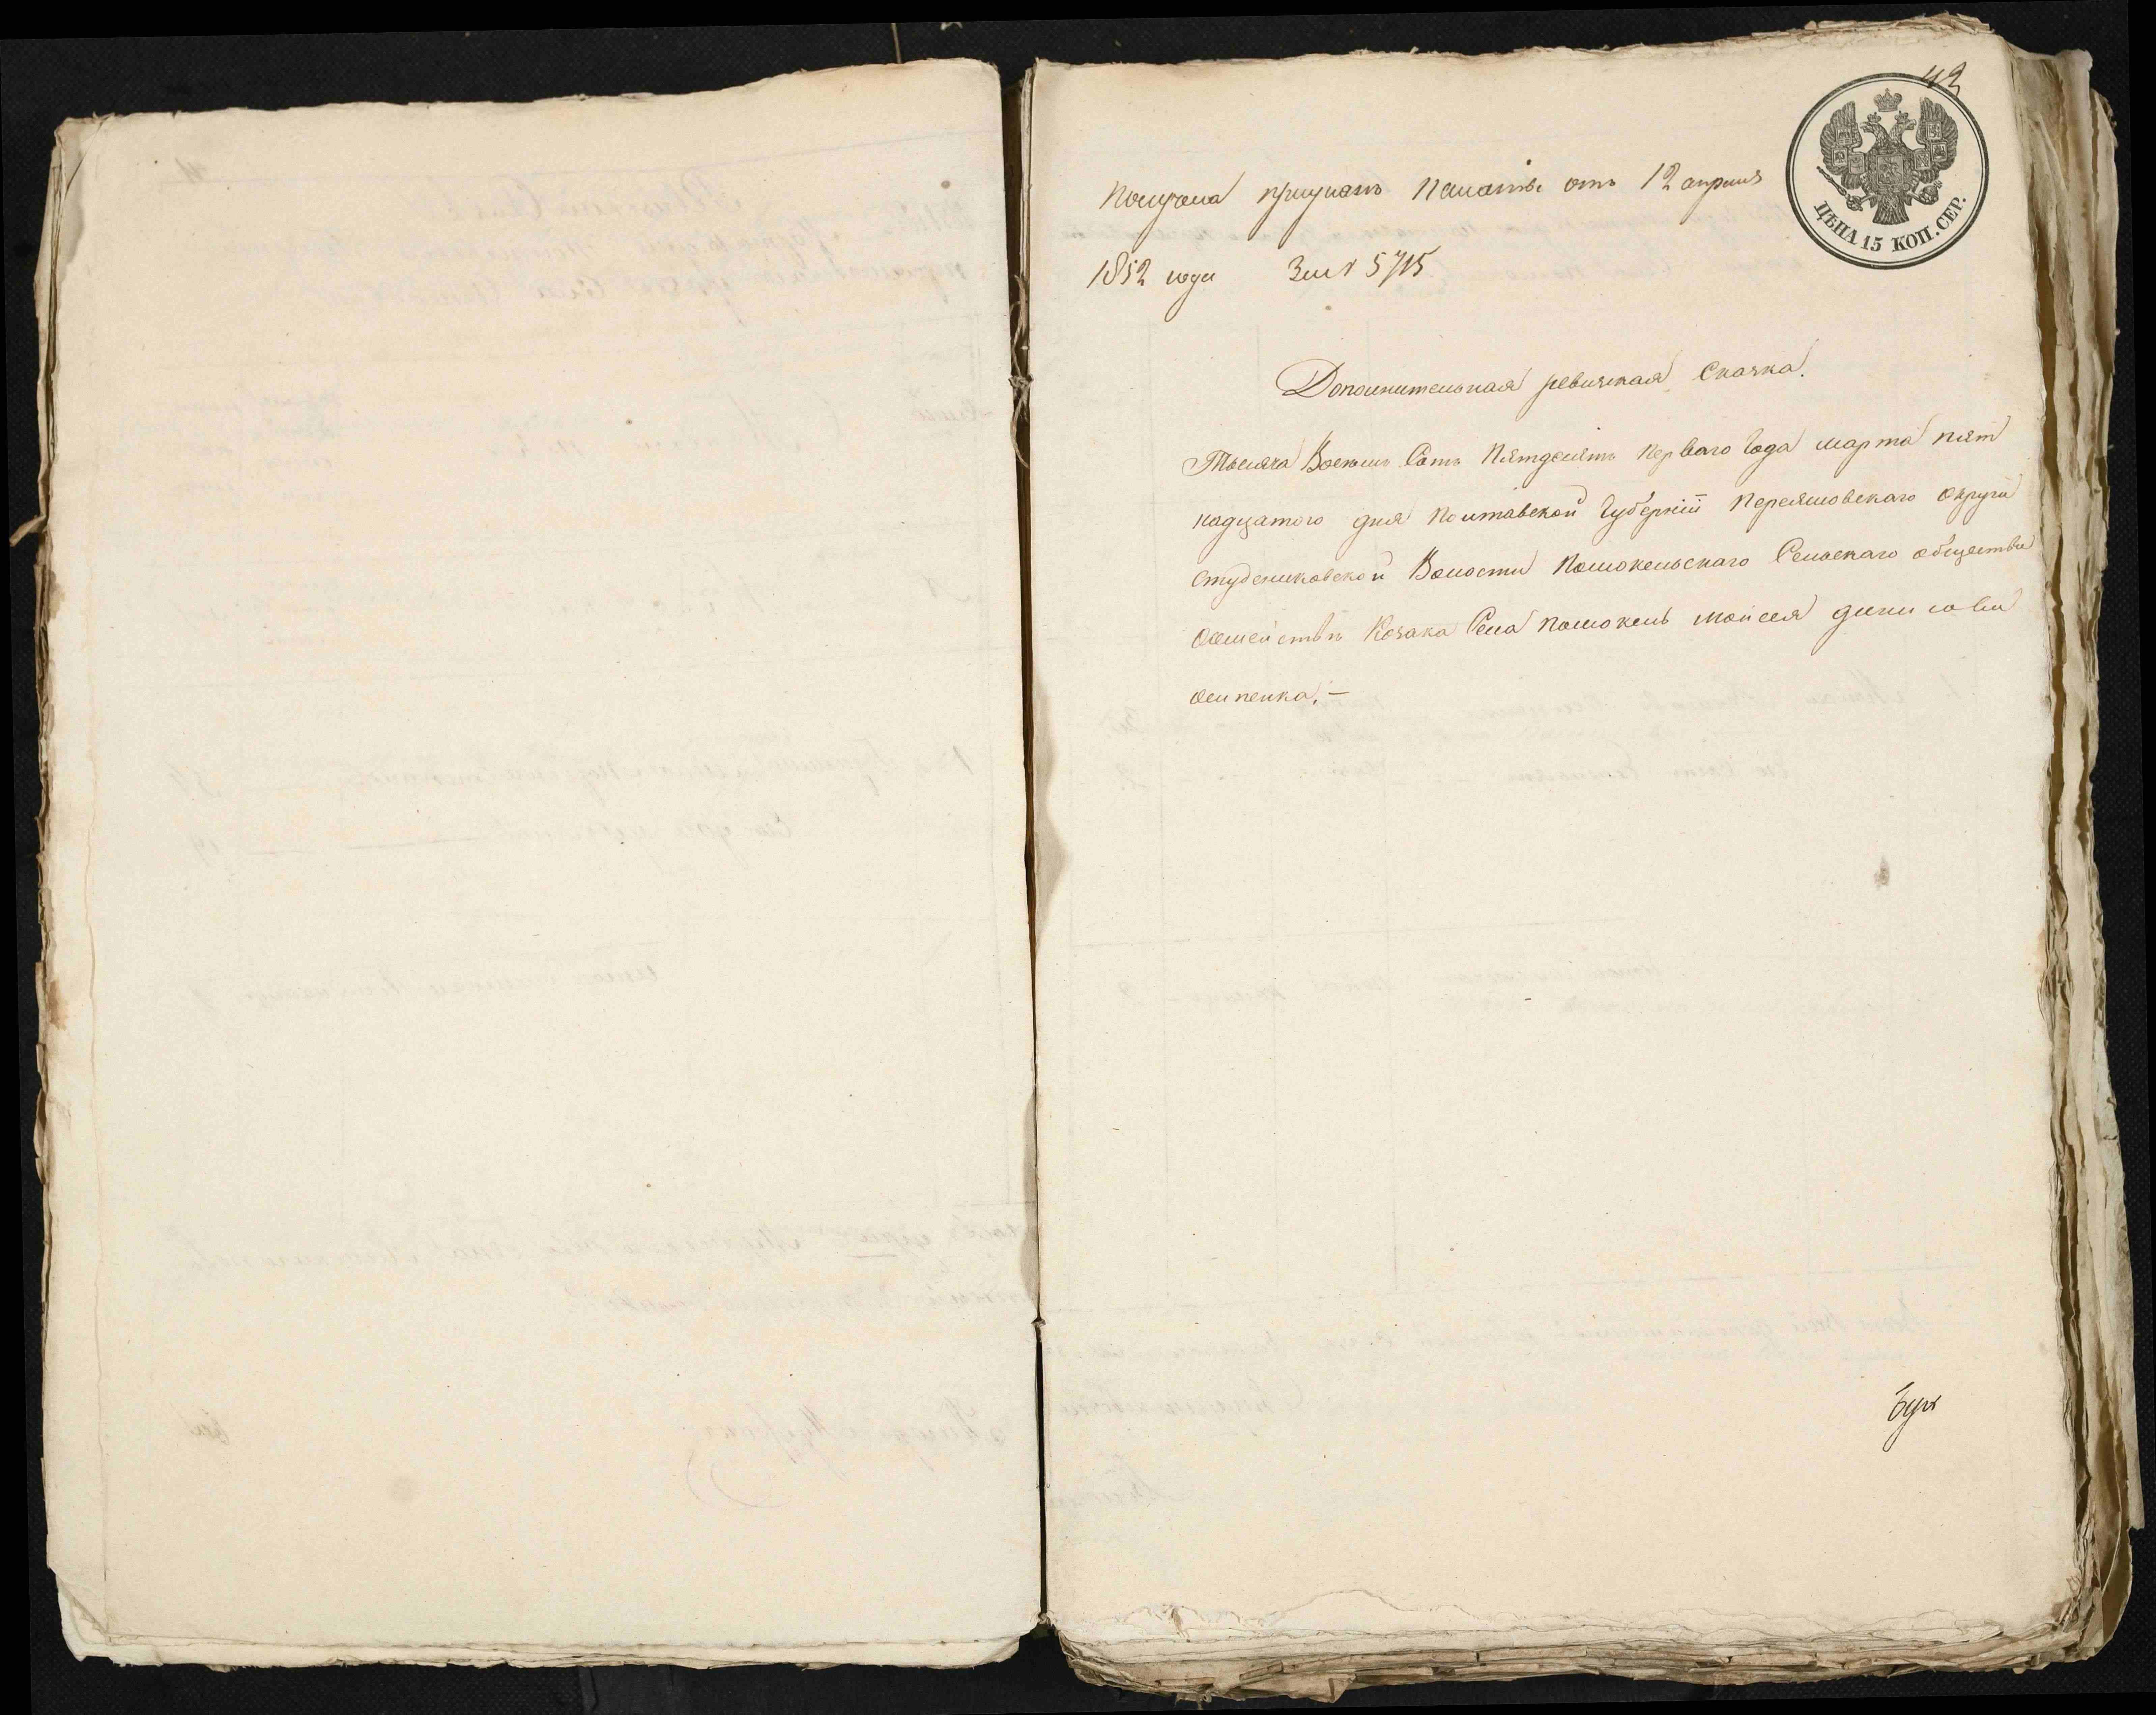 42
ЦѢНА 15 КОП. СЕР.
Получена при указѣ Палаты отъ 12 апреля
1852 года За № 5715
Дополнительная ревизкая Сказка.
Тысяча Восемь Сотъ Пятдесятъ Перваго Года марта пят
надцатого дня Полтавской Губернии Переяславскаго округа
Студениковской Волости Помокельскаго Сельскаго общества
осемействѣ Козака Села Помокель Моисея Денисова
осипенка. —